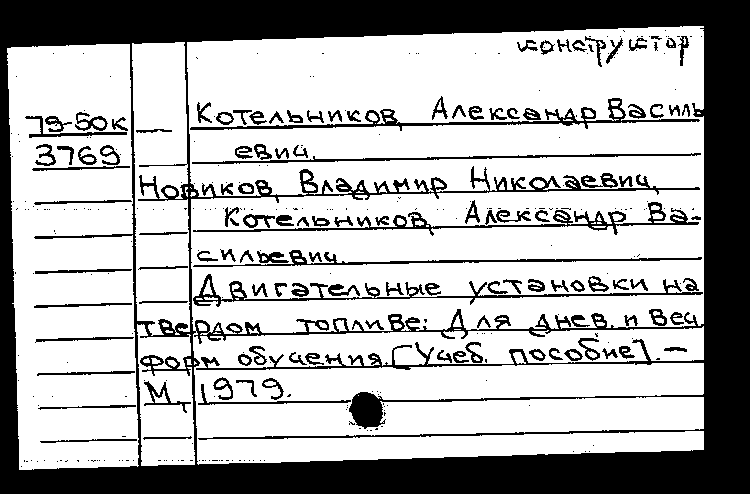 конструктор
79-50к — Котельников, Александр Василь
3769 евич.
Новиков, Владимир Николаевич,
Котельников, Александр Ва-
сильевич.
Двигательные установки на
твердом топливе: Для днев. и веч.
форм обучения. [Учеб. пособие]. —
М., 1979.